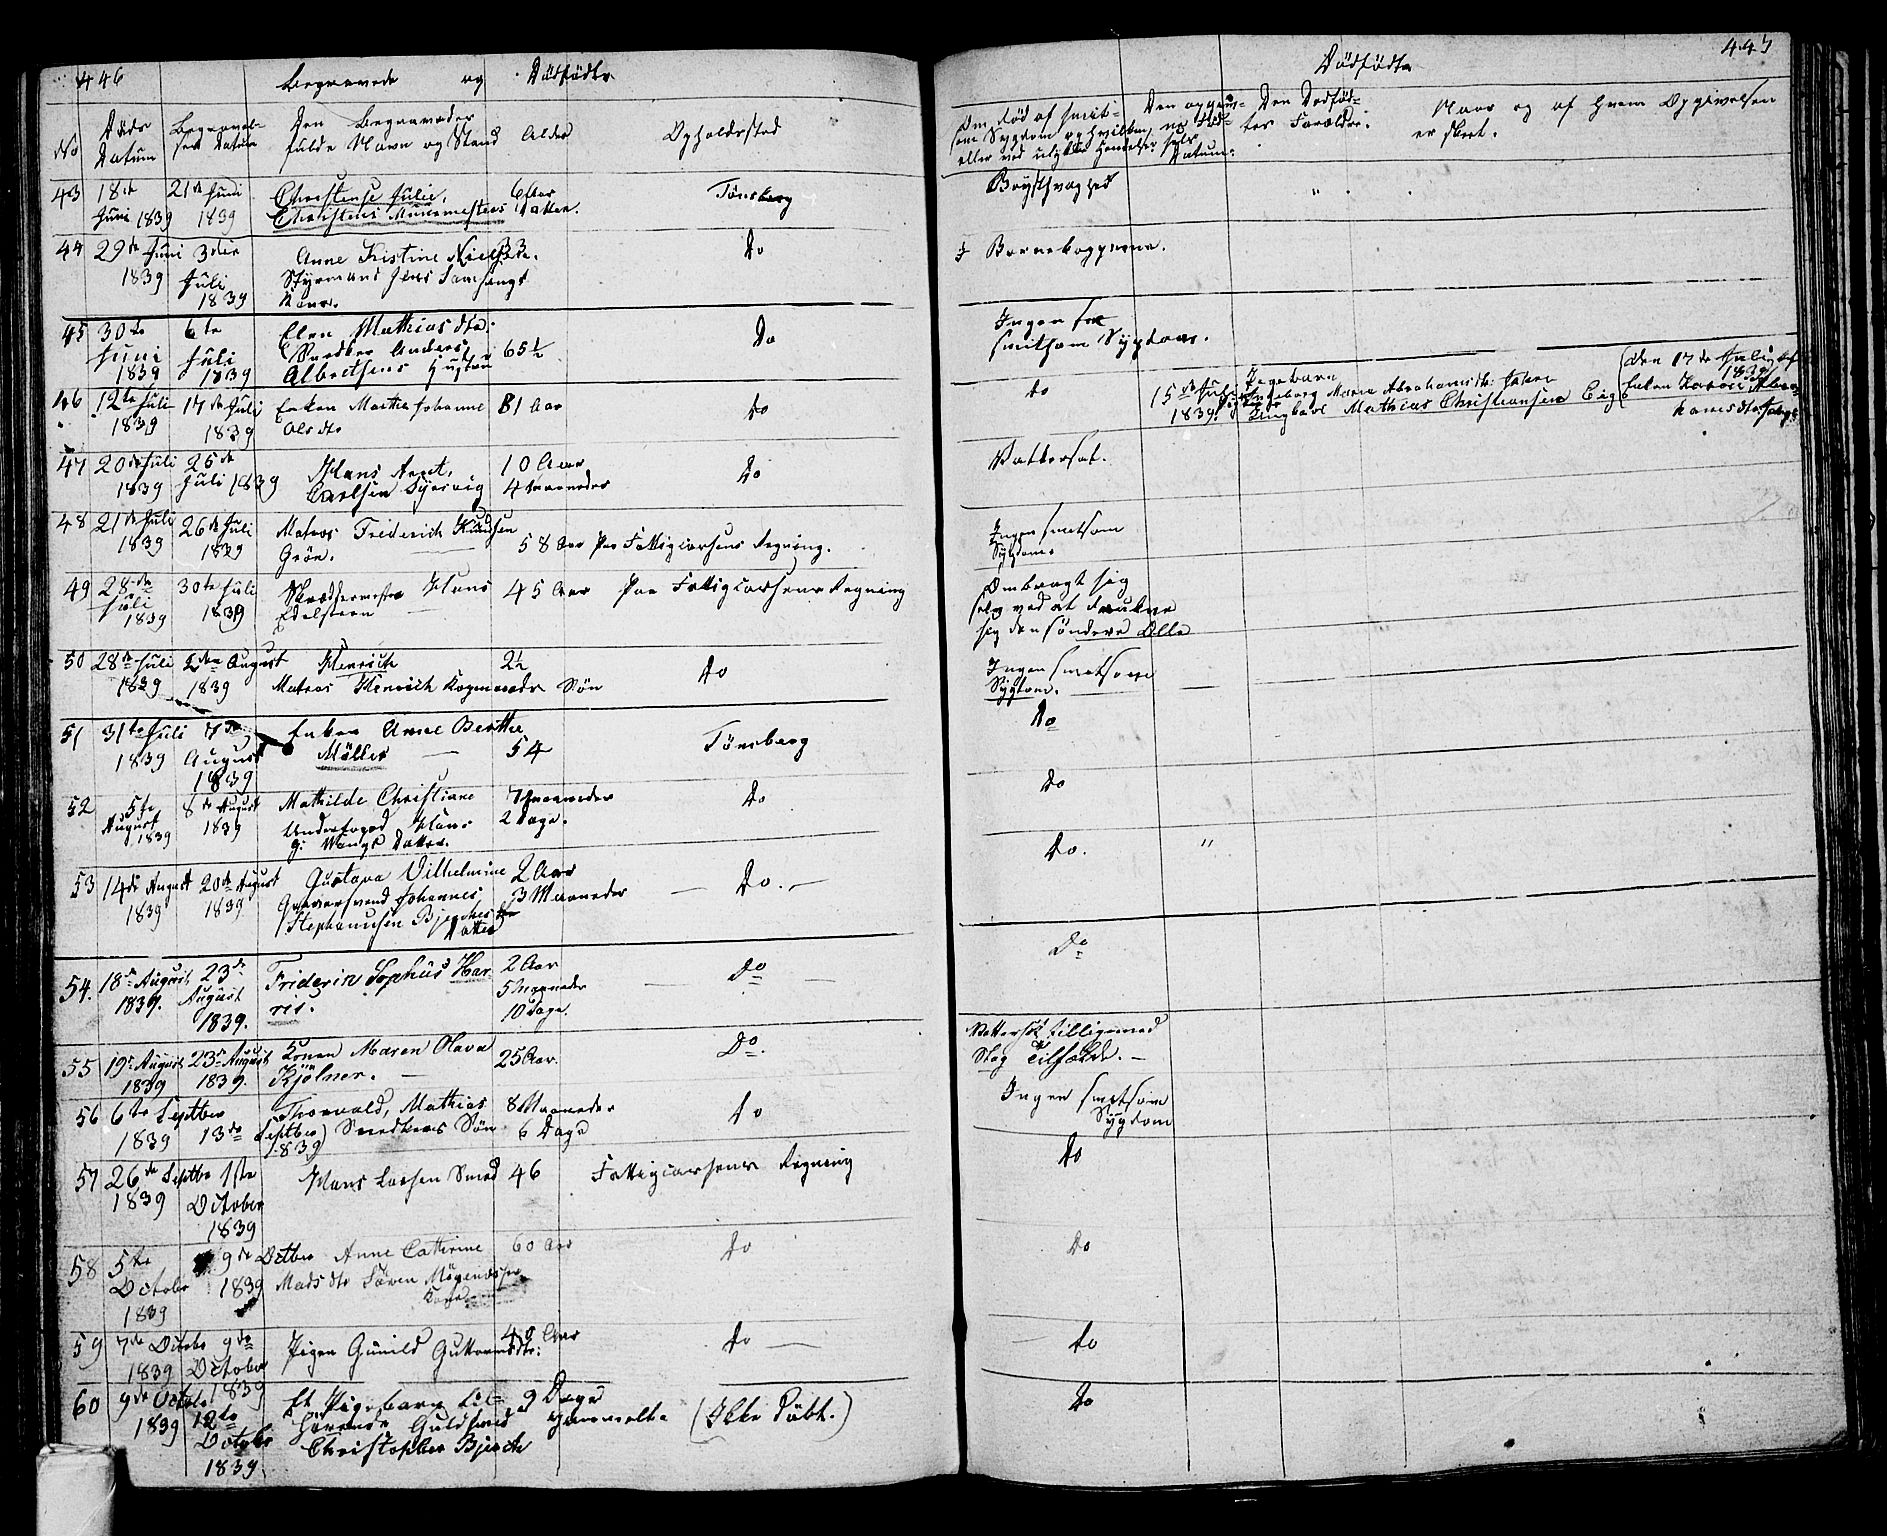 446
Begravede og Dödfödte
No
Döds Datum
Begravel-
sens Datum
Den Begravedes
fulde Navn og Stand
Alder
Opholdssted
43 18de Juni 1839 21de Juni 1839 Christense Julie,
Christens Muurmesters Datter. 6 Aar Tönsberg
44 29de Juni 1839 3die Juli 1839 Anne Kistine Niels dtr.
Styrmand Jens
Kone. 33 Do
45 30te Juni 1839 6te Juli 1839 Elen Mathias dtr.
Snedker Anders
Albretsens Hustru 65½ Do
46 12te Juli 1839 17de Juli 1839 Enken Marthe Johanne
Olsdtr 81 Aar Do
47 20de Juli 1839 25de Juli 1839 Hans Arnt,
Carlsen 10 Aar
4 Maaneder Do
48 21de Juli 1839 26de Juli 1839 Matros Friderich Knudsen
Grön. 58 Aar Paa Fattigcassens Regning.
49 28de Juli 1839 30te Juli 1839 Skrædermester Hans
Edelsteen 45 Aar Paa Fattigcassens Regning
50 28de Juli 1839 2den August 1839 Henrich
Matros Henrich Sön 2½ Do
51 31te Juli 1839 7de August 1839 Enken Anne Berthe
Möller 54 Tönsberg
52 5te August 1839 8de August 1839 Mathilde Christiane
Underfoged Hans
G: Wangs Datter. 7 Maaneder
2 Dage. Do
53 14de August 1839 20de August 1839 Gustava Vilhelmine
Johannes
Stephanusen Bjerches
Datter 2 Aar
3 Maaneder Do.
54. 18de August 1839. 23de August 1839. Friderik Sophus Har-
ris. 2 Aar
5 Maaneder
10 Dage. Do
55 19de August 1839 23de August 1839. Konen Maren Olava
Kjölner. 25 Aar. Do.
56 6te Septber 1839 13de Septber 1839 Thorvald, Mathias
Snedkers Sön 8 Maaneder
6 Dage Do
57 26de Septbr 1839 1ste October 1839 Hans Larsen Smed 46 Fattigcassens Regning
58 5te October 1839 9de Octber 1839 Anne Cathrine
Madsdtr Sören
Kone 60 Aar Do
59 7de Octobr 1839 9de October 1839 Pigen Gunild Guttormsdtr: Aar Do
60 9de Octobr 1839 12te Octobr 1839 Et Pigebarn til-
hörende Guldsmed
Christopher Bjerch 9 Dage
gammelt (Ikke Döbt.)
447
Dödfödte
Om död af smit-
som Sygdom og hvilken,
eller ved ulykkelig Hændelse
Den Dödföd-
tes Forældre.
Naar og af hvem Opgivelsen
er skeet.
Brystsvaghed
I Barnekopperne.
Ingen
smitsom Sygdom.
do
15de Juli 1839. Pigebarn
Ingeborg Marie Abrahamsdtr:
Ungkarl Mathias Christiansen
Den 17de Juli 1839 af
Enken Karen Abra-
hamsdtr
Vattersot.
Ingen smitsom
Sygdom.
Ombragt sig
selv ved at drukne
sig den söndre Ölle
Ingen smitsom
Sygdom.
Do
Do
Do.
Do
Vattersot tilligemed
Slag Tilfælde.
Ingen smitsom
Sygdom
Do
Do
do
Do